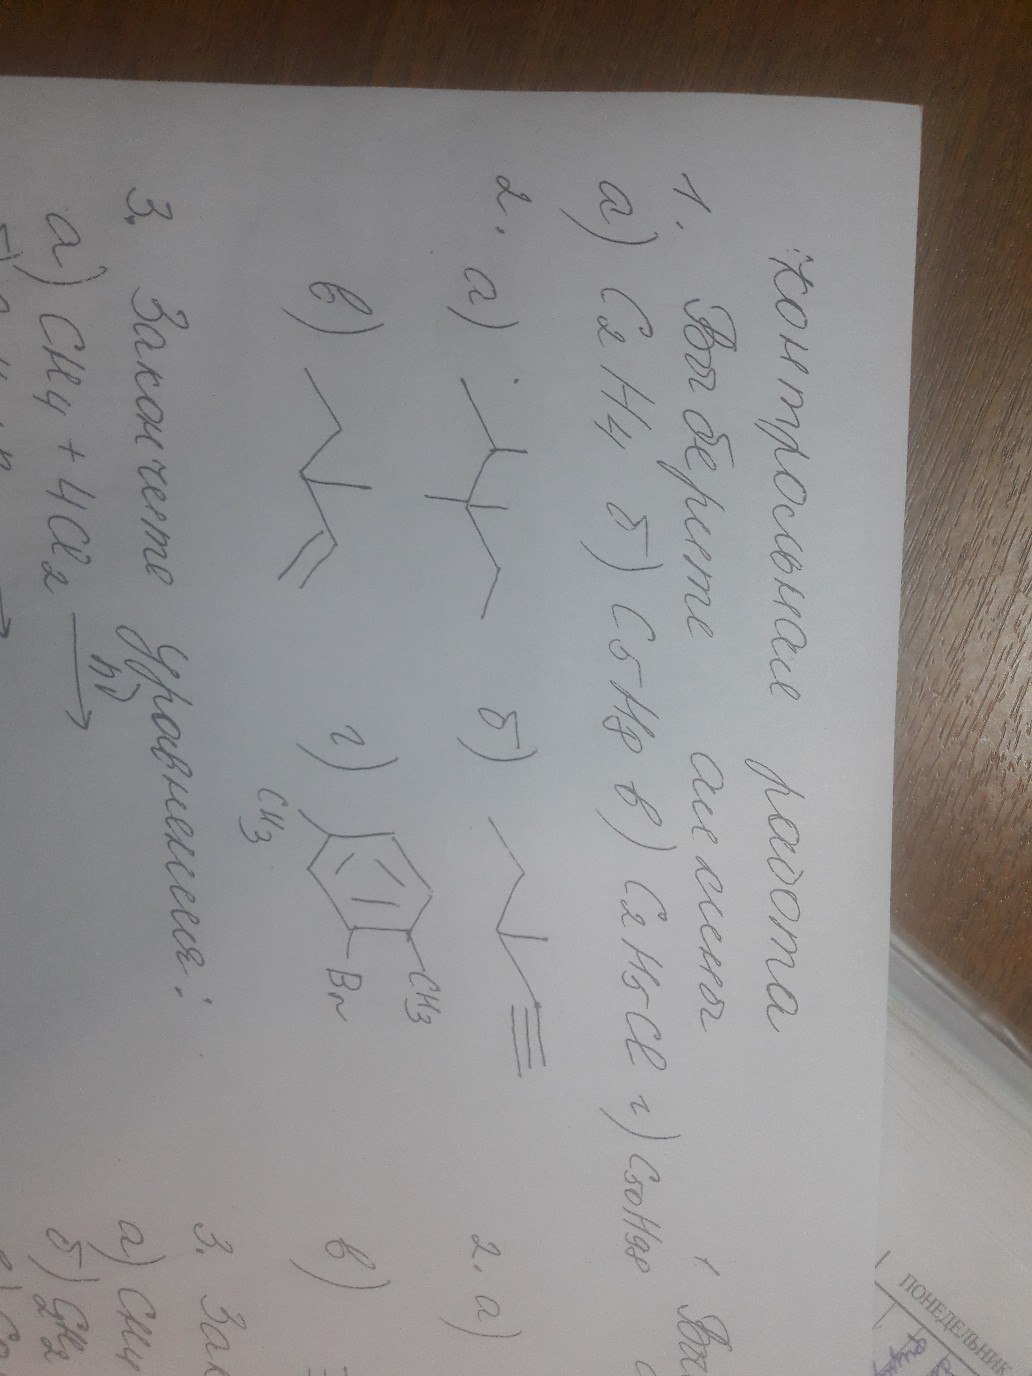 Контрольная работа
1. Выберите алкены
а) C2H4 б) C5H8 в) C2H5Cl г) C50H98
2. а) б)
в) г) CH3 Br CH3
3. Закончите уравнения:
а) CH4 + 4Cl2 hν →
1.
2. а)
в)
3. Зак
а) CH4
б)
ПОНЕДЕЛЬНИК